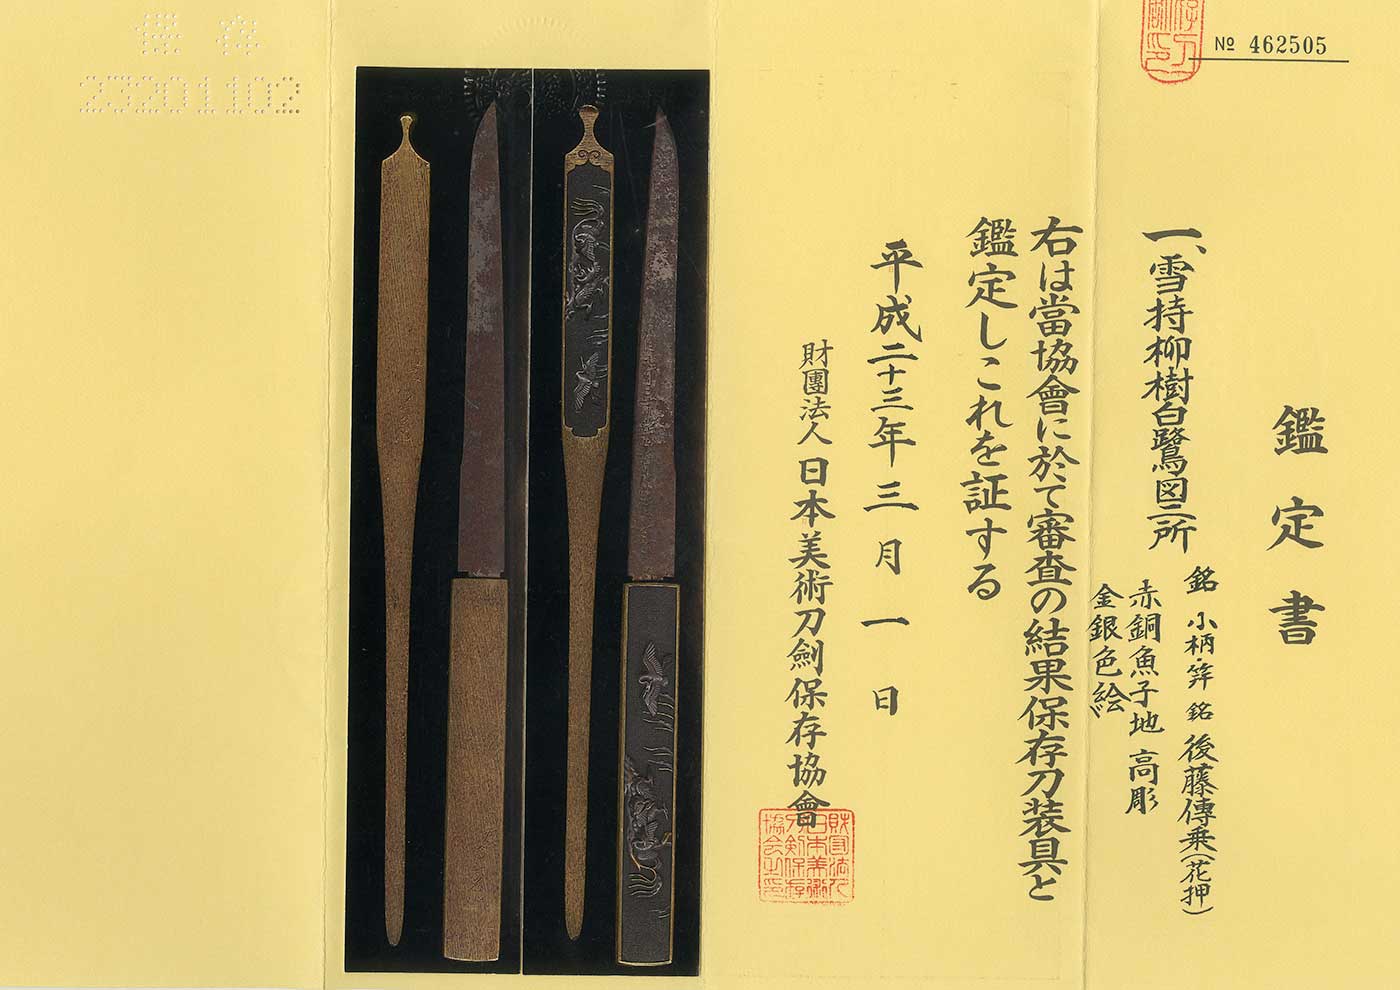 № 462505
鑑定書
一、雪持柳樹白鷺図二所
銘 小柄・笄 銘 後藤傳乗(花押)
赤銅魚子地 高彫
金銀色絵
右は當協會に於て審査の結果保存刀装具と
鑑定しこれを証する
平成二十三年三月一日
財團法人日本美術刀劍保存協會
保存
23201102